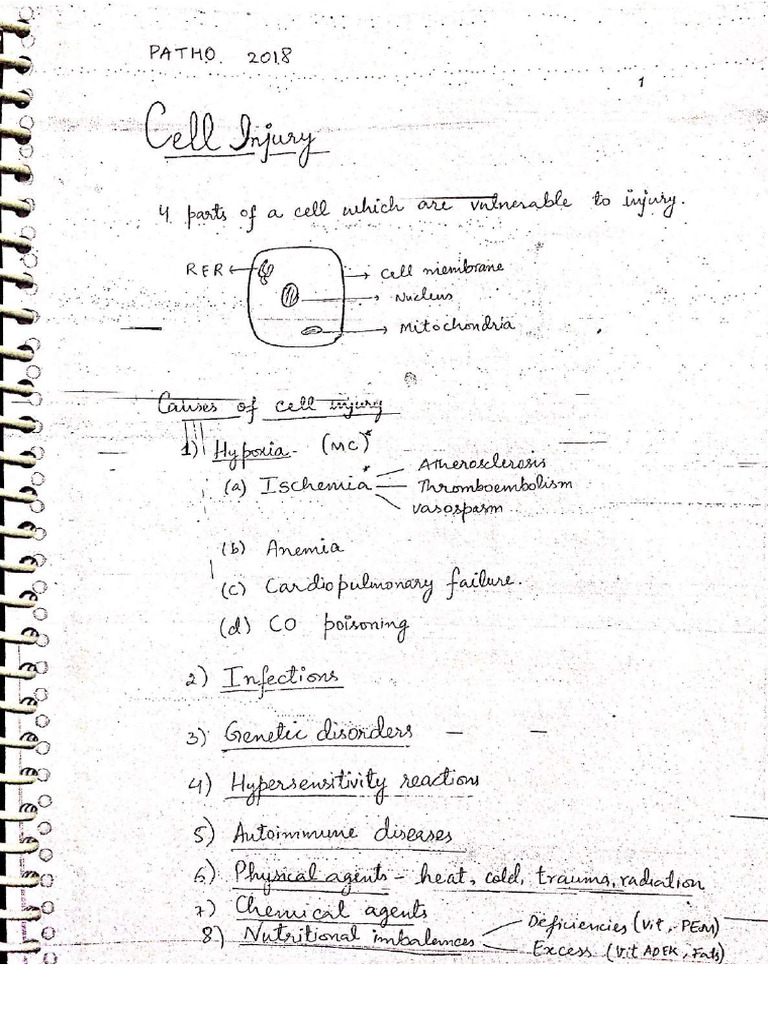 PATHO. 2018
1
Cell Injury
4 parts of a cell which are vulnerable to injury.
RER
Cell membrane
Nucleus
Mitochondria
Causes of cell injury
1) Hypoxia - (MC)*
(a) Ischemia*
Atherosclerosis
Thromboembolism
Vasospasm
(b) Anemia
(c) Cardiopulmonary failure.
(d) CO poisoning
2) Infections
3) Genetic disorders — —
4) Hypersensitivity reactions
5) Autoimmune diseases
6) Physical agents - heat, cold, trauma, radiation
7) Chemical agents
8) Nutritional imbalances
Deficiencies (Vit, PEM)
Excess (Vit ADEK, Fats)